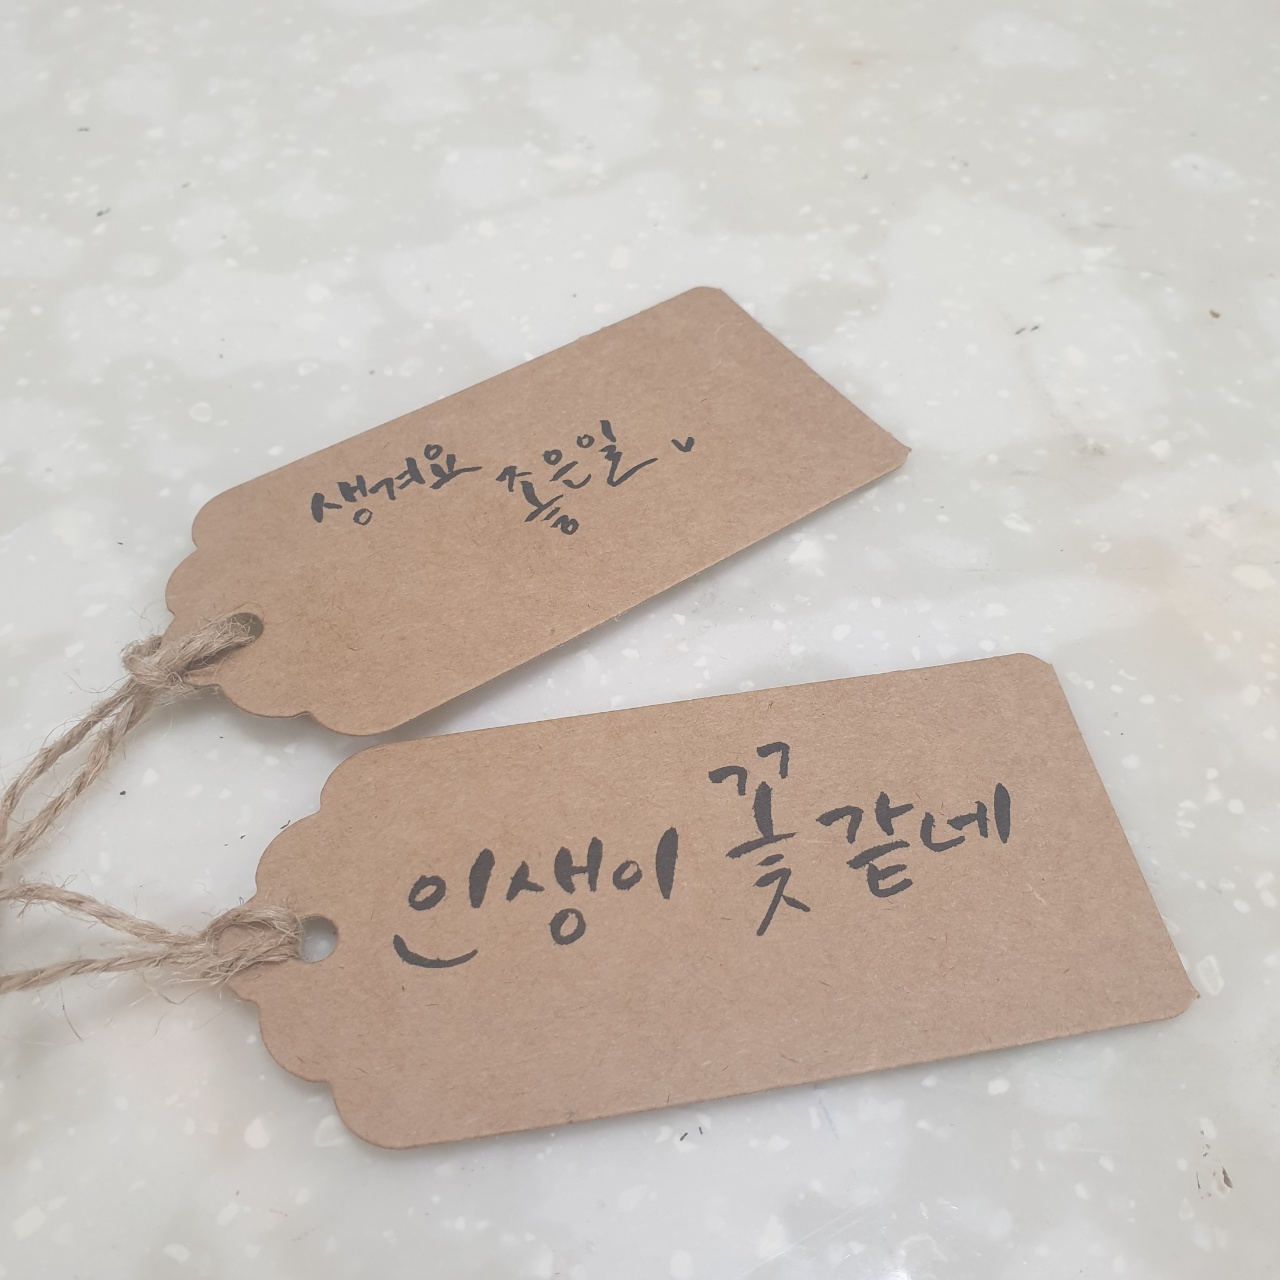 생겨요 좋은일
인생이 꽃 같네